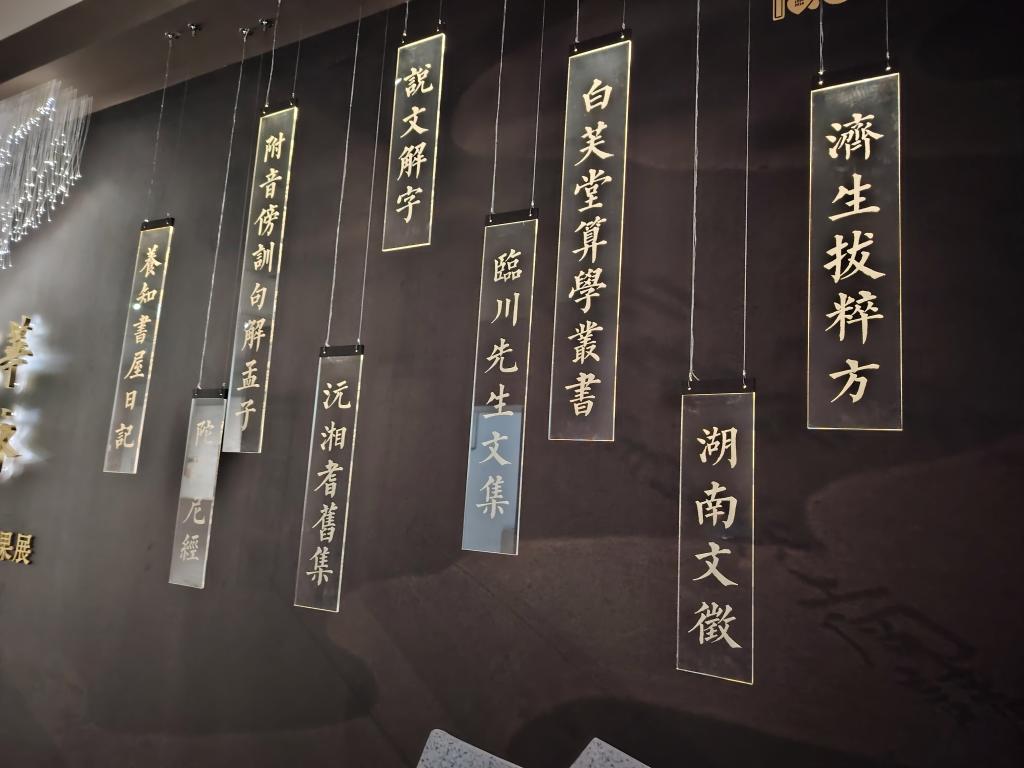 濟生拔粹方
湖南文徵
白芙堂算學叢書
臨川先生文集
説文解字
沅湘耆舊集
附音傍訓句解孟子
陀尼經
養知書屋日記
果展